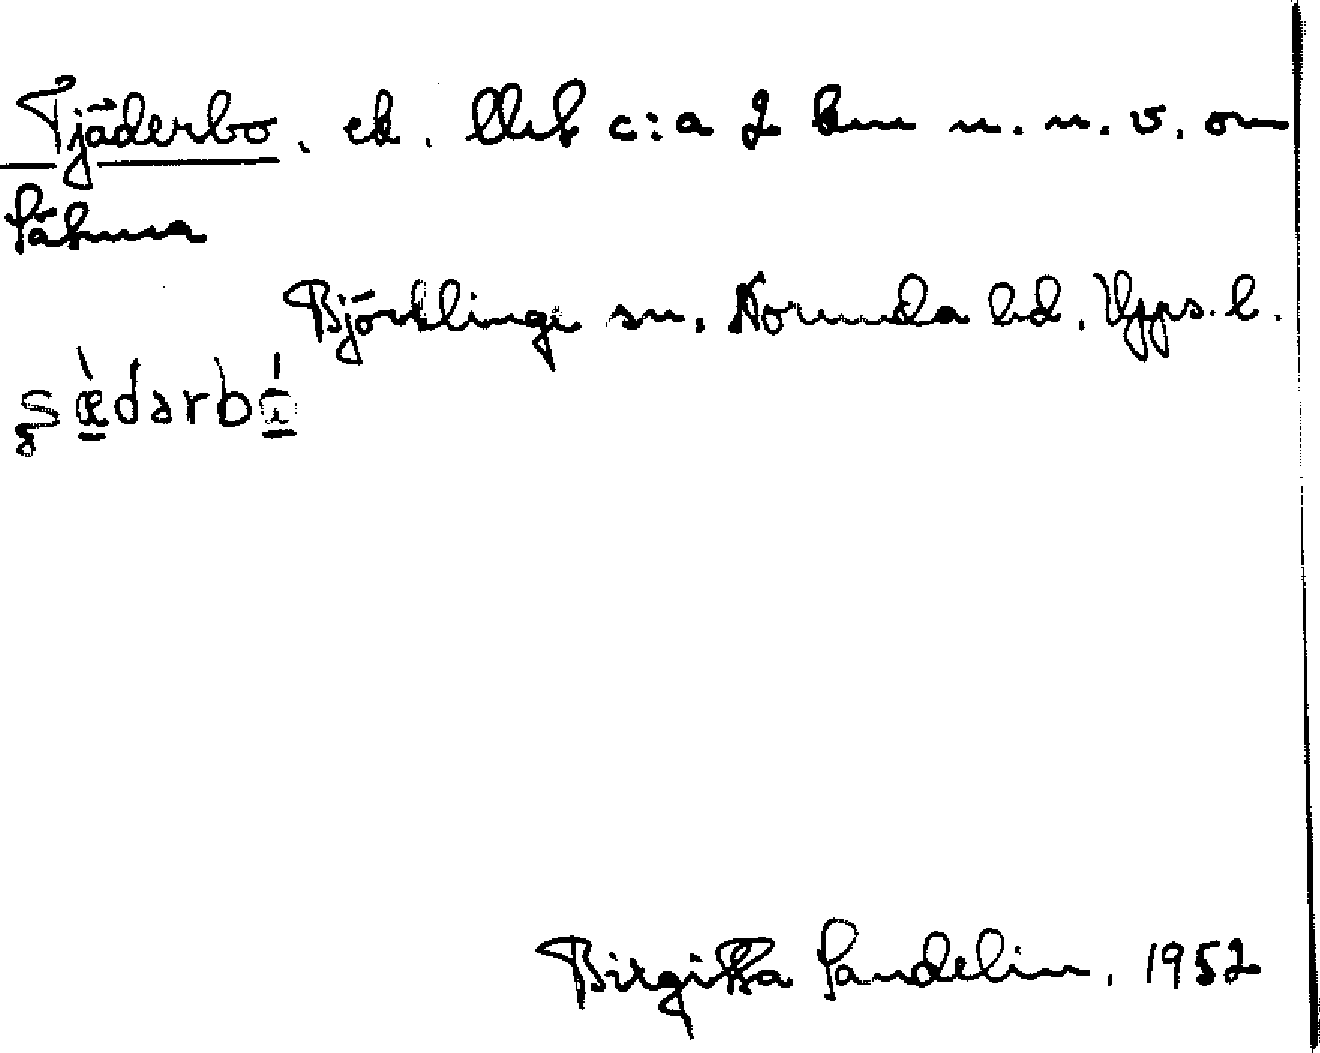 Tjäderbo, ek. Ulvb c:a 2 km n. n. v. om
Sätuna
Björklinge sn. Norunda hd. Upps. l.
Birgitta Sandelin, 1952